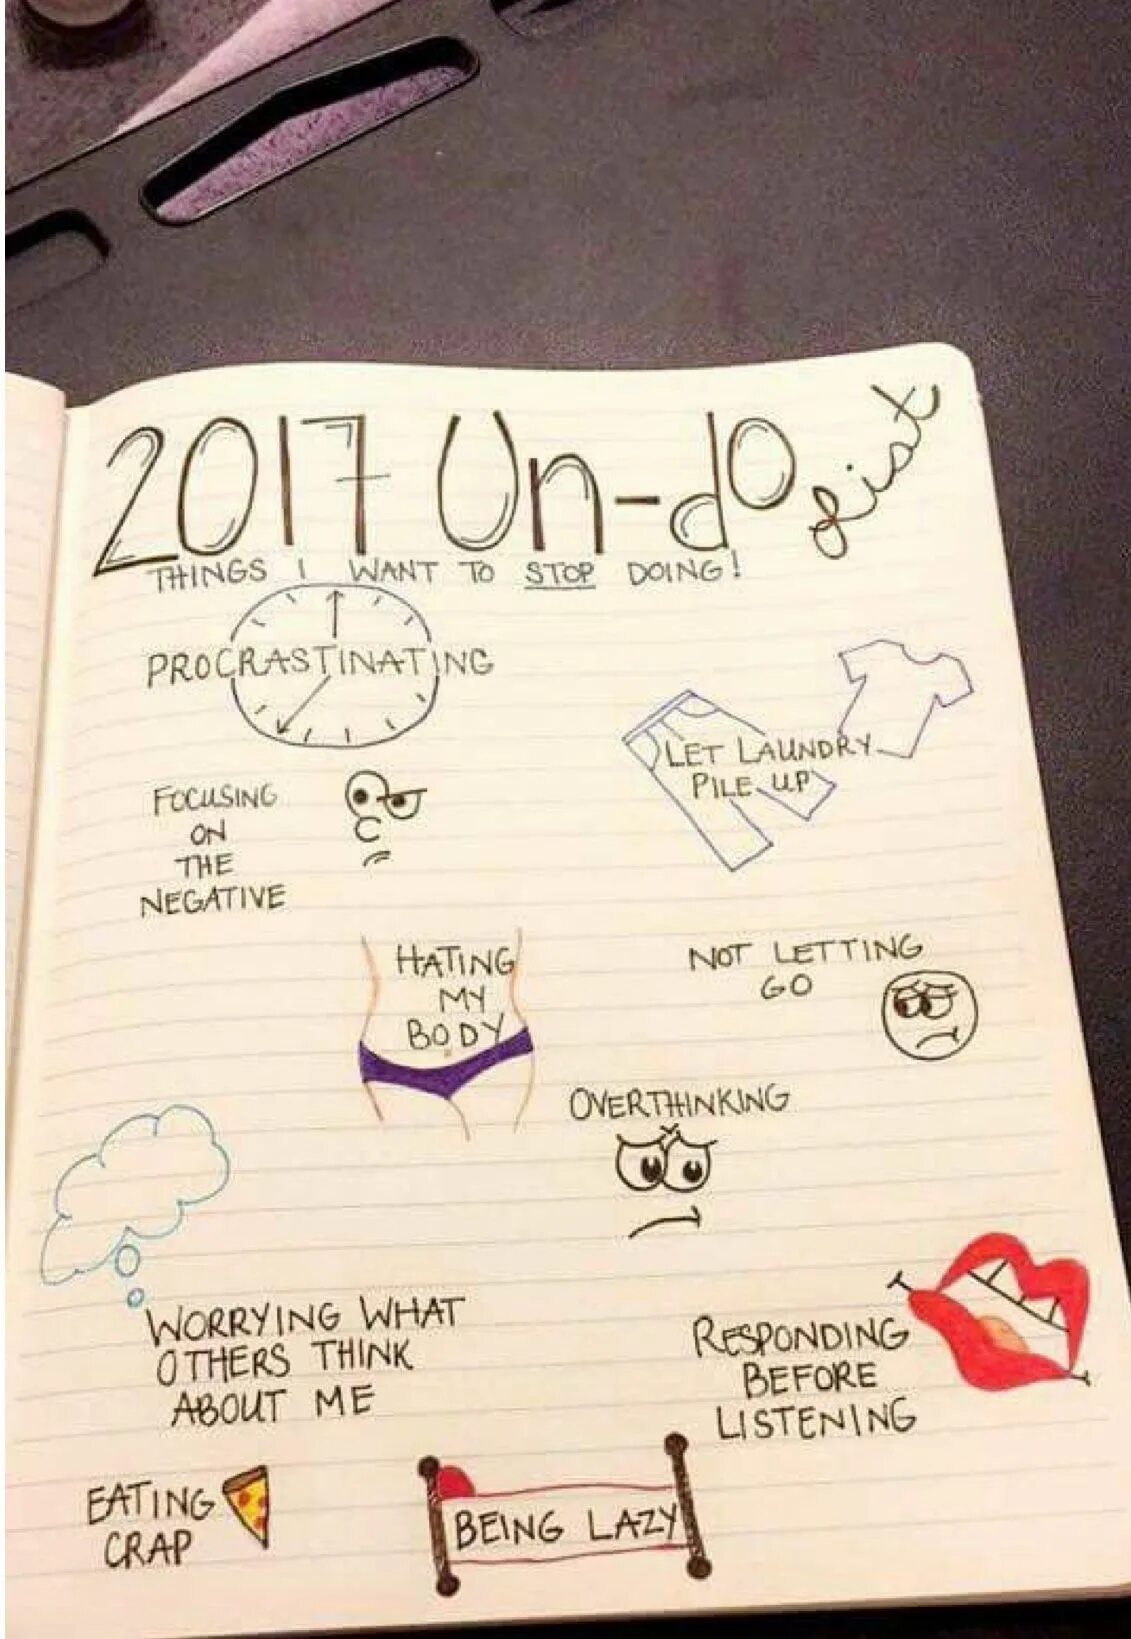 2017 Un-do List
THINGS I WANT TO STOP DOING!
PROCRASTINATING
LET LAUNDRY
PILE UP
FOCUSING
ON
THE
NEGATIVE
HATING
MY
BODY
NOT LETTING
GO
OVERTHINKING
WORRYING WHAT
OTHERS THINK
ABOUT ME
RESPONDING
BEFORE
LISTENING
EATING
CRAP
BEING LAZY